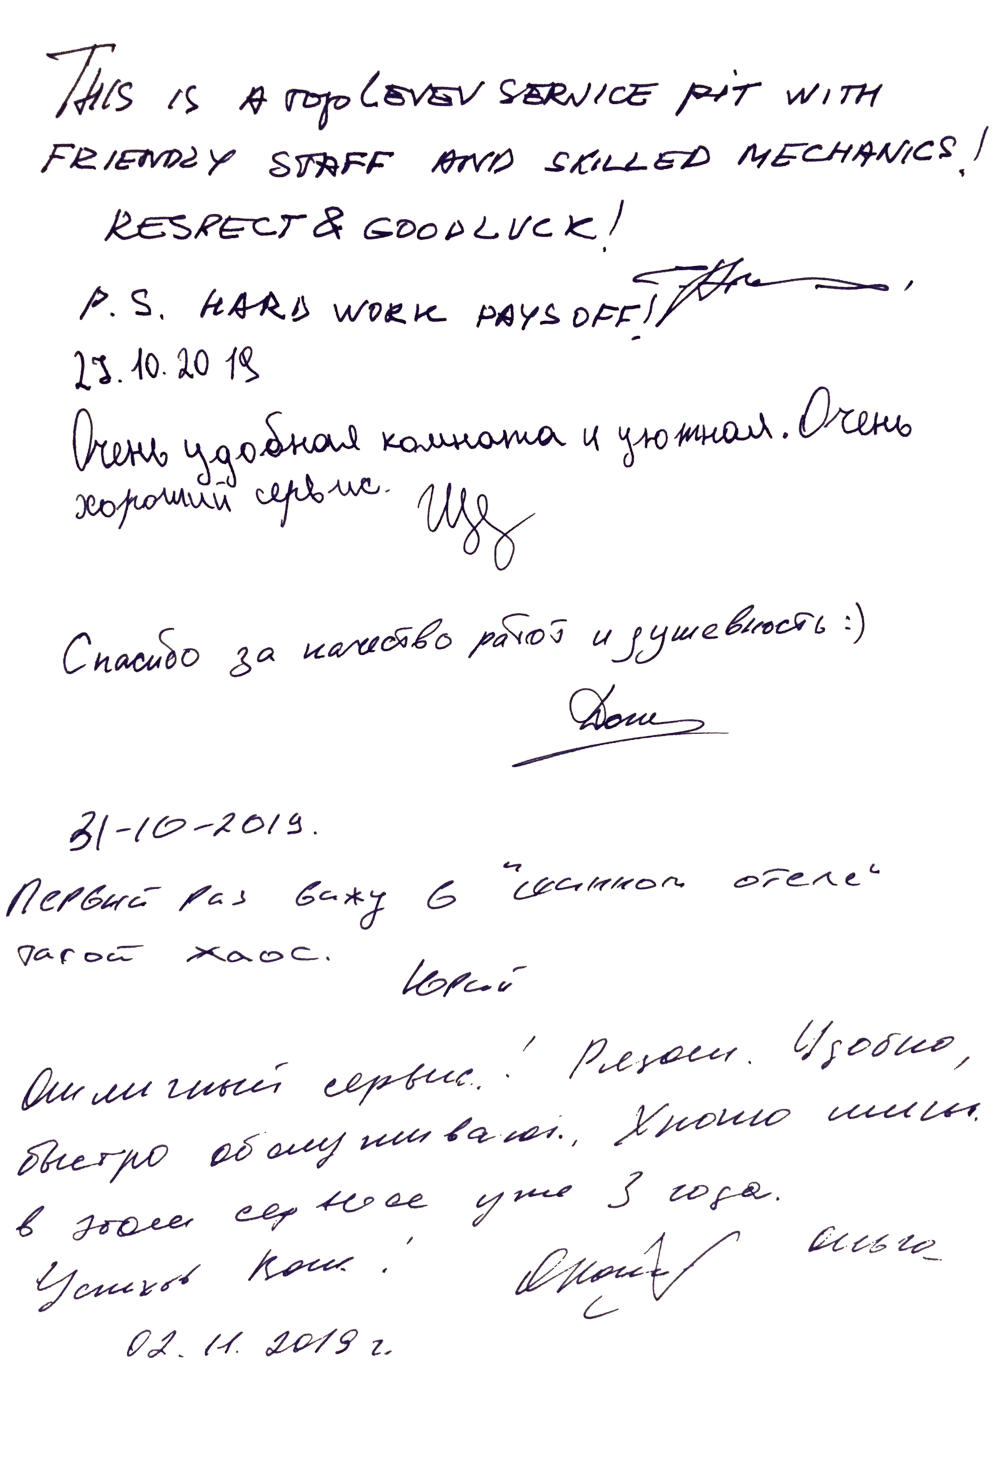 THIS IS A TOP LEVEL SERVICE PIT WITH
FRIENDLY STAFF AND SKILLED MECHANICS!
RESPECT & GOOD LUCK!
P.S. HARD WORK PAYS OFF!
23.10.2019
Очень удобная комната и уютная. Очень
хороший сервис.
Спасибо за качество работ и душевность :)
31-10-2019.
Первый раз вижу в "шинном отеле"
такой хаос.
Юрий
Отличный сервис! Рядом. Удобно,
быстро обслуживают. Храню шины
в этом сервисе уже 3 года.
Успехов Вам!
Ольга
02.11.2019 г.